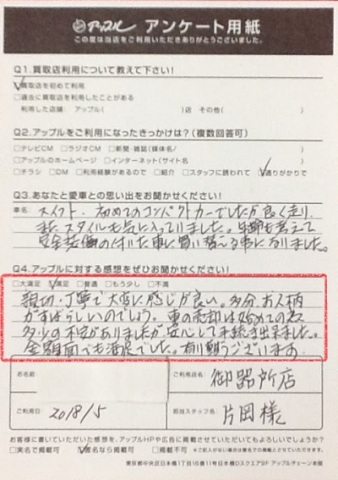 アップル アンケート用紙
この度は当店をご利用いただきありがとうございました。
Q1.買取店利用について教えて下さい!
買取店を初めて利用
過去に買取店を利用したことがある
利用した店舗: アップル( )店 その他( )
Q2.アップルをご利用になったきっかけは?(複数回答可)
テレビCM ラジオCM 新聞・雑誌(媒体名/ )
アップルのホームページ インターネット(サイト名 )
チラシ DM 利用経験があるので 紹介 スタッフに誘われて 通りがかりで
Q3.あなたと愛車との思い出をお聞かせください!
車名: スイフト 初めてのコンパクトカーでしたが良く走り、
またスタイルも気に入っていました。年齢も考えて
安全装備の付いた車に買い替える事になりました。
Q4.アップルに対する感想をぜひお聞かせください!
大満足 満足 普通 もう少し 不満
親切、丁寧で大変に感じが良い。多分、お人柄
がすばらしいのでしょう。車の売却は始めての為
多少の不安がありましたが安心して手続き出来ました。
金額面でも満足でした。有り難うございます。
お名前
ご利用店名
御器所店
ご利用日 2018/5
担当スタッフ名 片岡様
お客様に書いていただいた感想を、アップルHPや広告に掲載させていただいてもよろしいでしょうか?
実名で掲載可 匿名なら掲載可 掲載不可
東京都中央区日本橋1丁目16番11号日本橋Dスクエア5F アップルチェーン本部